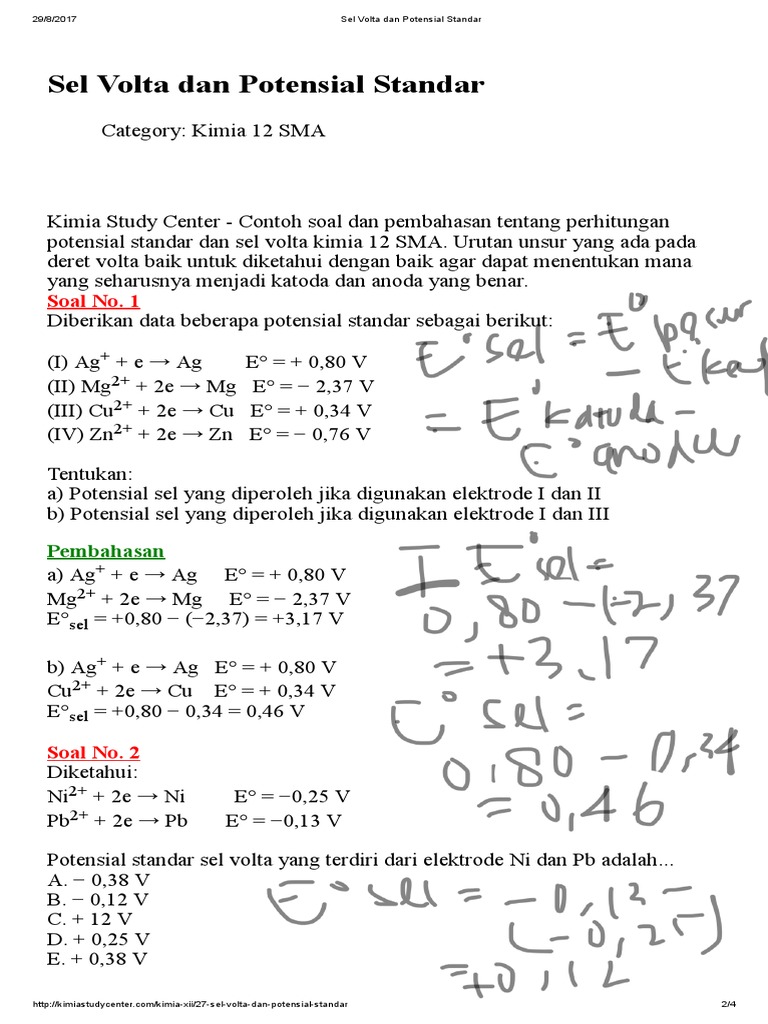 29/8/2017 Sel Volta dan Potensial Standar
Sel Volta dan Potensial Standar
Category: Kimia 12 SMA
Kimia Study Center - Contoh soal dan pembahasan tentang perhitungan
potensial standar dan sel volta kimia 12 SMA. Urutan unsur yang ada pada
deret volta baik untuk diketahui dengan baik agar dapat menentukan mana
yang seharusnya menjadi katoda dan anoda yang benar.
Soal No. 1
Diberikan data beberapa potensial standar sebagai berikut:
(I) Ag⁺ + e → Ag E° = + 0,80 V
(II) Mg²⁺ + 2e → Mg E° = − 2,37 V
(III) Cu²⁺ + 2e → Cu E° = + 0,34 V
(IV) Zn²⁺ + 2e → Zn E° = − 0,76 V
E° sel = E°
=  E° katoda -
E° anoda
Tentukan:
a) Potensial sel yang diperoleh jika digunakan elektrode I dan II
b) Potensial sel yang diperoleh jika digunakan elektrode I dan III
Pembahasan
a) Ag⁺ + e → Ag E° = + 0,80 V
Mg²⁺ + 2e → Mg E° = − 2,37 V
E°sel = +0,80 − (−2,37) = +3,17 V
I E° sel =
0,80 - (-2,37
= +3.17
b) Ag⁺ + e → Ag E° = + 0,80 V
Cu²⁺ + 2e → Cu E° = + 0,34 V
E°sel = +0,80 − 0,34 = 0,46 V
E° sel =
0,80 - 0,34
= 0,46
Soal No. 2
Diketahui:
Ni²⁺ + 2e → Ni E° = −0,25 V
Pb²⁺ + 2e → Pb E° = −0,13 V
Potensial standar sel volta yang terdiri dari elektrode Ni dan Pb adalah...
A. − 0,38 V
B. − 0,12 V
C. + 12 V
D. + 0,25 V
E. + 0,38 V
E° sel = -0,13 -
(-0,25)
= +0,12
http://kimiastudycenter.com/kimia-xii/27-sel-volta-dan-potensial-standar 2/4